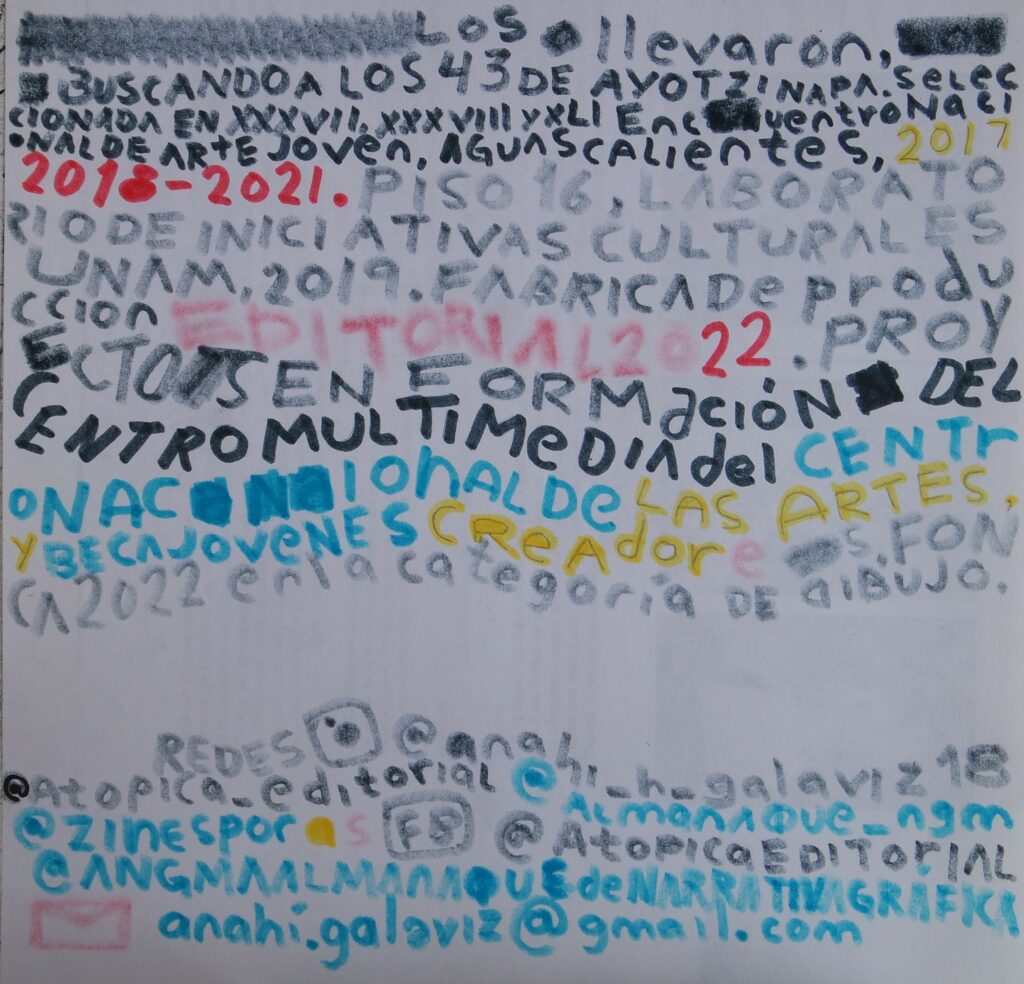 LOS llevaron,
BUSCANDO A LOS 43 DE AYOTZINAPA. Selec
CIONADA EN XXXVII, XXXVIII y XLI Encuentro Naci
ONAL DE ARTE Joven, AGUASCALientes, 2017
2018-2021. PISO 16, LABORATO
RIO DE INICIATIVAS CULTURALES
UNAM, 2019. FABRICA De produ
ccion EDITORIAL 2022. PROY
ECTOS EN FORMación DEL
CENTRO MULTIMeDIA del CENTr
O NACIOnAL De LAS ARTES,
Y BECA JOVeNES CREAdores, FON
CA 2022 en la categoría DE dIBUJO.
REDES @anahi_h_galaviz18
@Atopica_editorial @ALmanaque_ngm
@zinesporas FB @AtopicaEDITorIAL
@ANGMAALMANAQUEdeNARRATIVAGRÁFICA
anahi.galaviz@gmail.com